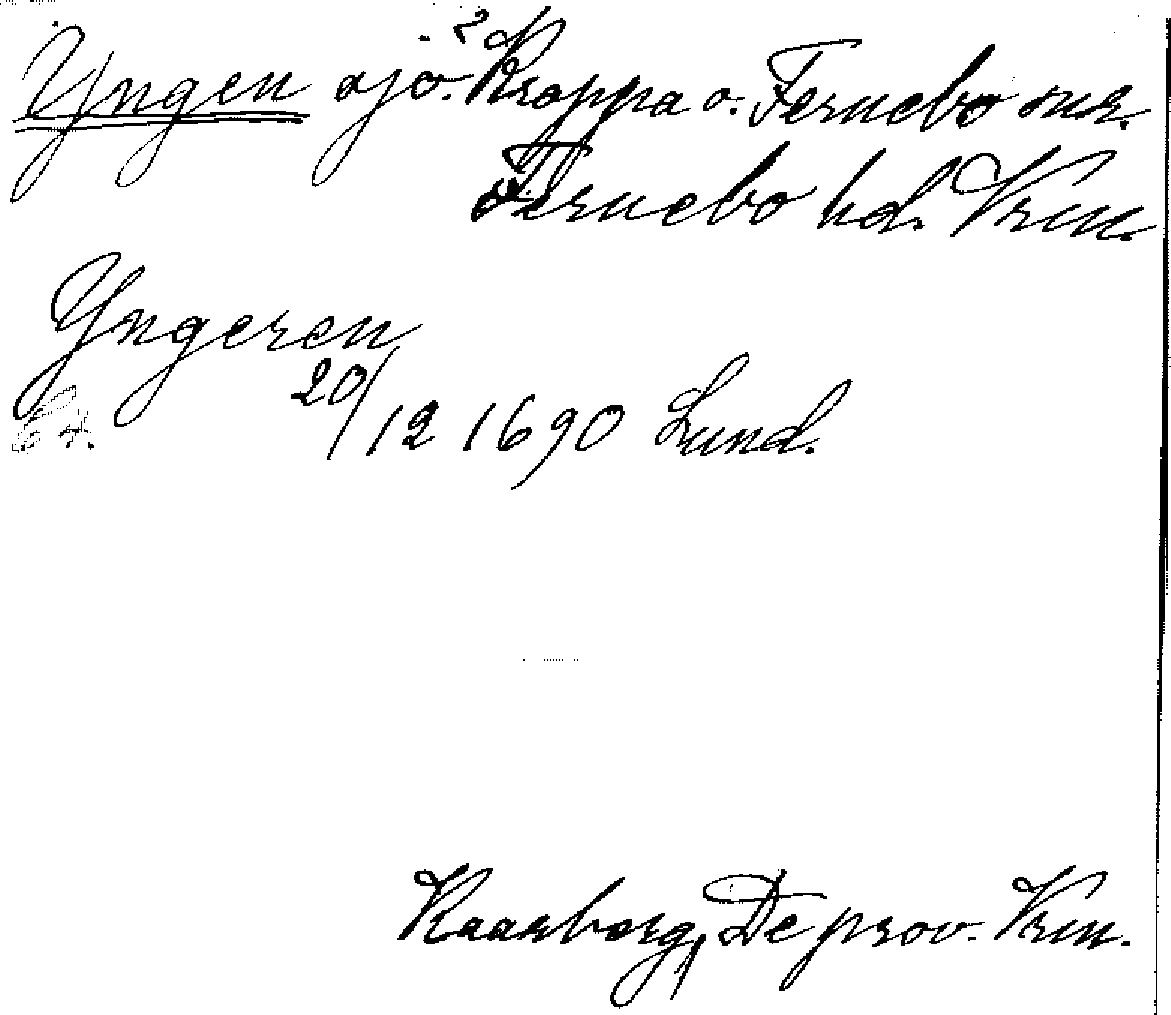 Yngen sjö. Kroppa o. Fernebo snr.
Fernebo hd. Vrm.
Yngeren
20/12 1690 Lund.
Kaarborg, De prov. Vrm.